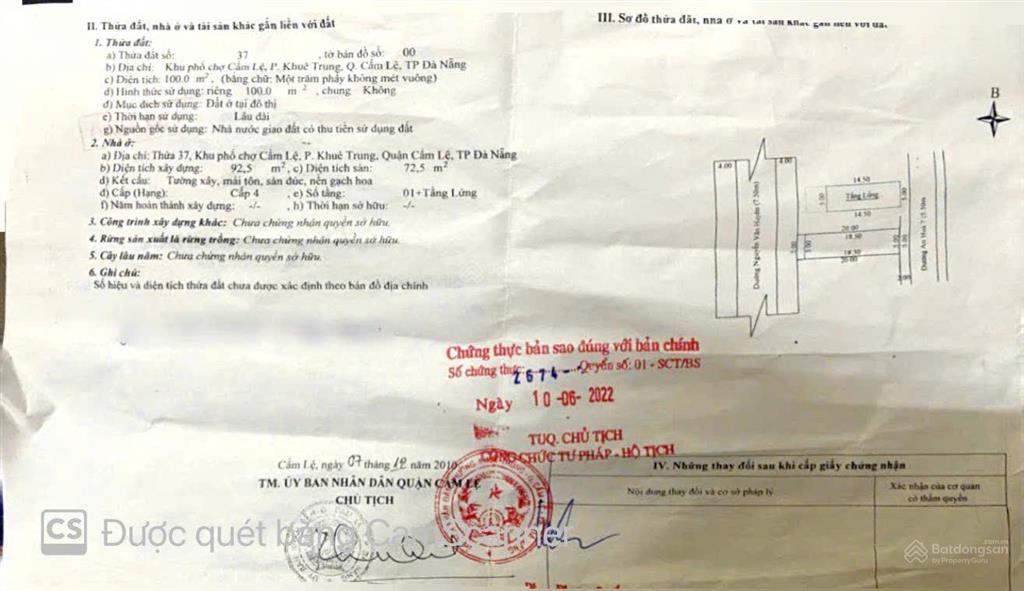 II. Thửa đất, nhà ở và tài sản khác gắn liền với đất
1. Thửa đất:
a) Thửa đất số: 37 , tờ bản đồ số: 00
b) Địa chỉ: Khu phố chợ Cẩm Lệ, P. Khuê Trung, Q. Cẩm Lệ, TP Đà Nẵng
c) Diện tích: 100.0 m², (bằng chữ: Một trăm phẩy không mét vuông)
d) Hình thức sử dụng: riêng 100.0 m ², chung Không
đ) Mục đích sử dụng: Đất ở tại đô thị
e) Thời hạn sử dụng: Lâu dài
g) Nguồn gốc sử dụng: Nhà nước giao đất có thu tiền sử dụng đất
2. Nhà ở: --
a) Địa chỉ: Thửa 37, Khu phố chợ Cẩm Lệ, P. Khuê Trung, Quận Cẩm Lệ, TP Đà Nẵng
b) Diện tích xây dựng: 92,5 m², c) Diện tích sàn: 72,5 m²
d) Kết cấu: Tường xây, mái tôn, sàn đúc, nền gạch hoa
đ) Cấp (Hạng): Cấp 4 , e) Số tầng: 01+Tầng Lửng
f) Năm hoàn thành xây dựng: -/- , h) Thời hạn sở hữu: -/-
3. Công trình xây dựng khác: Chưa chứng nhận quyền sở hữu.
4. Rừng sản xuất là rừng trồng: Chưa chứng nhận quyền sở hữu.
5. Cây lâu năm: Chưa chứng nhận quyền sở hữu.
6. Ghi chú:
Số hiệu và diện tích thửa đất chưa được xác định theo bản đồ địa chính
III. Sơ đồ thửa đất, nhà ở và tài sản khác gắn liền với đất
B
4.00
4.00
Đường Nguyễn Văn Huyên (7.50m)
14.50
5.00
Tầng Lửng
5.00
14.50
20.00
18.50
5.00
5.00
18.50
20.00
Đường An Hoà 7 (5.50m)
Chứng thực bản sao đúng với bản chính
Số chứng thực: 2674 Quyển số: 01 - SCT/BS
Ngày 10 -06- 2022
TUQ. CHỦ TỊCH
CÔNG CHỨC TƯ PHÁP - HỘ TỊCH
Cẩm Lệ, ngày 07 tháng 12 năm 2010
TM. ỦY BAN NHÂN DÂN QUẬN CẨM LỆ
CHỦ TỊCH
IV. Những thay đổi sau khi cấp giấy chứng nhận
Nội dung thay đổi và cơ sở pháp lý
Xác nhận của cơ quan
có thẩm quyền
CS Được quét bằng
Batdongsan
by PropertyGuru